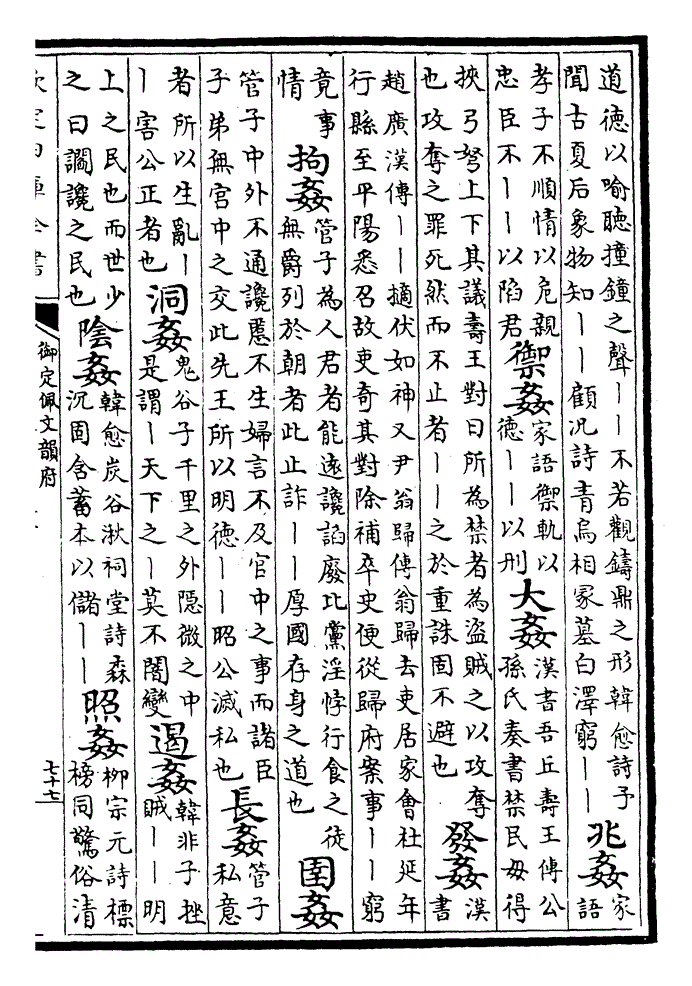 道德以喻聽撞鐘之聲丨丨不若觀鑄鼎之形韓愈詩予
聞古夏后象物知丨丨顧况詩青烏相冢墓白澤窮丨丨
兆姦
家
語
孝子不順情以危親
忠臣不丨丨以陷君
禦姦
家語禦軌以
德丨丨以刑
大姦
漢書吾丘壽王傳公
孫氏奏書禁民毋得
挾弓弩上下其議壽王對曰所為禁者為盜賊之以攻奪
也攻奪之罪死然而不止者丨丨之於重誅固不避也
發姦
漢
書
趙廣漢傳丨丨擿伏如神又尹翁歸傳翁歸去吏居家會杜延年
行縣至平陽悉召故吏奇其對除補卒史便從歸府案事丨丨窮
竟事
情
拘姦
管子為人君者能遠讒諂廢比黨淫悖行食之徒
無爵列於朝者此止詐丨丨厚國存身之道也
圉姦
管子中外不通讒慝不生婦言不及官中之事而諸臣
子弟無宫中之交此先王所以明德丨丨昭公滅私也
長姦
管子
私意
者所以生亂丨
丨害公正者也
洞姦
鬼谷子千里之外隱微之中
是謂丨天下之丨莫不闇變
遏姦
韓非子挫
賊丨丨明
上之民也而世少
之曰讇讒之民也
陰姦
韓愈炭谷湫祠堂詩森
沉固含蓄本以儲丨丨
照姦
柳宗元詩標
榜同驚俗清
欽定四庫全書
御定佩文韻府
七十七